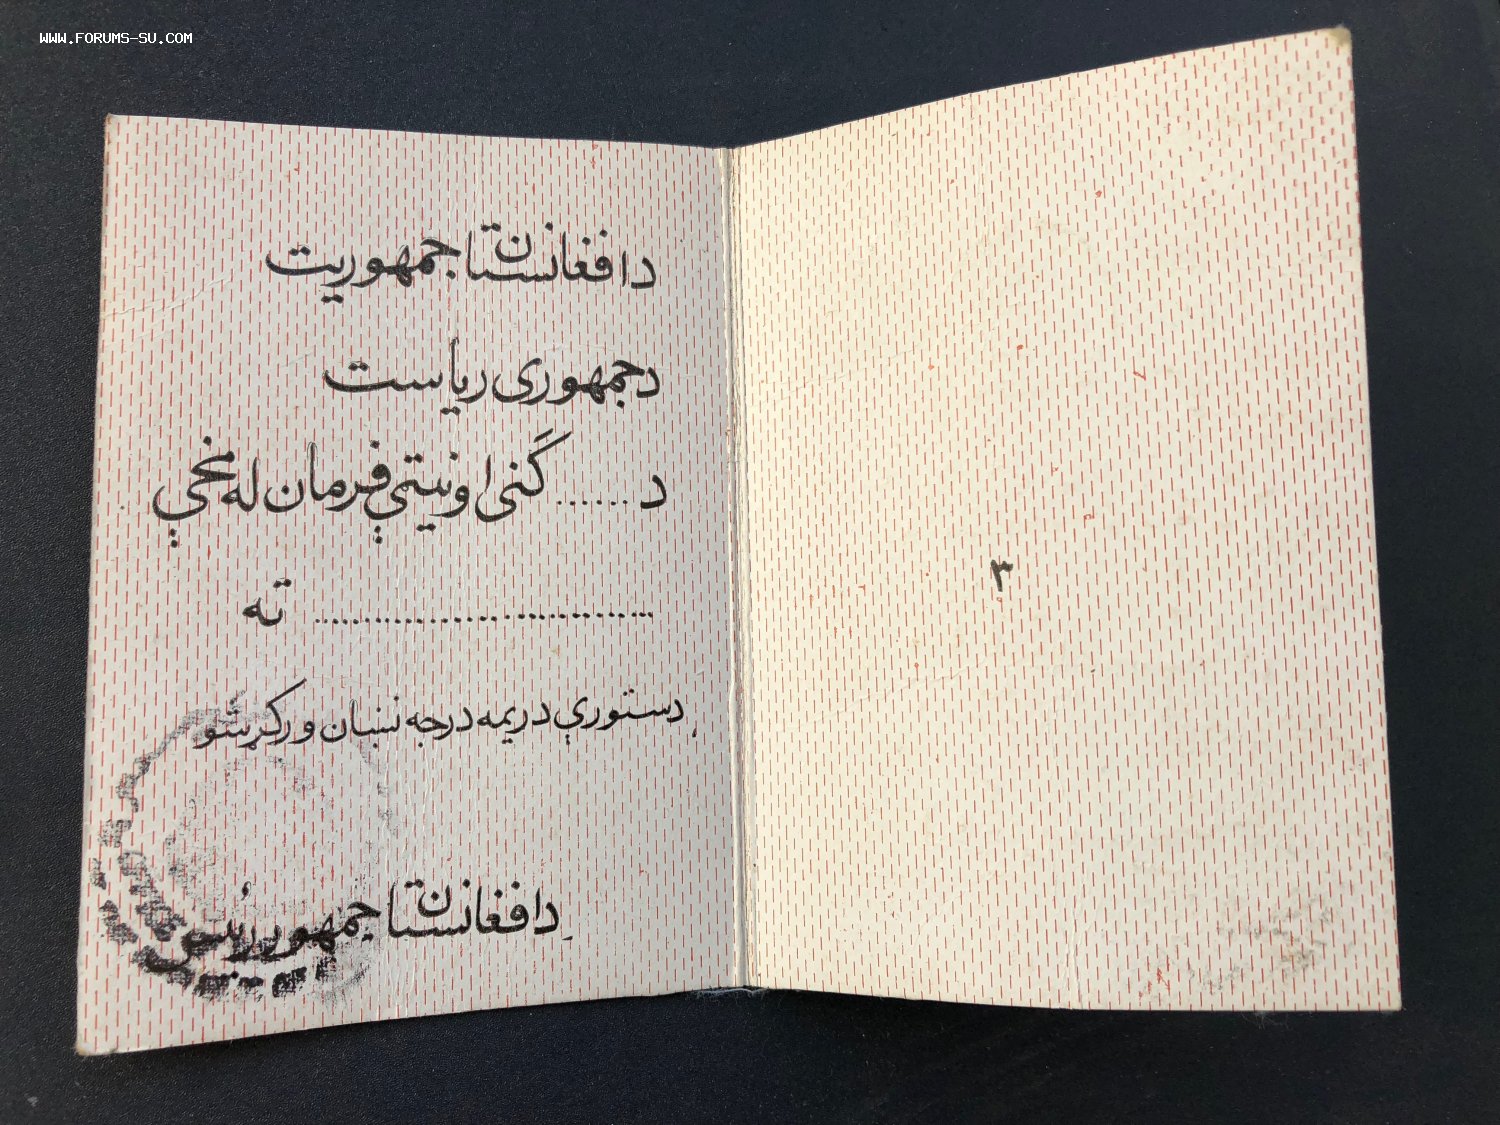 WWW.FORUMS-SU.COM
د افغانستان جمهوریت
د جمهوری ریاست
د ...... گڼی او نیټې فرمان له مخې
........................... ته
د ستوري دریمه درجه نښان ورکړ شو
د افغانستان جمهور رئیس
۳